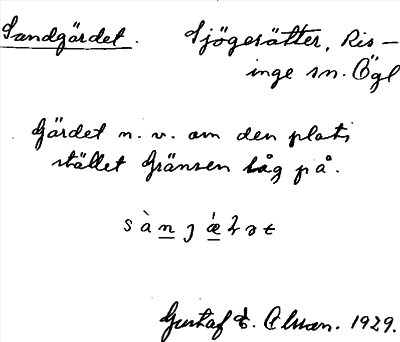 Sandgärdet. Sjögesätter, Ris-
inge sn. Ögl
Gärdet n. v. om den plats
stället Gränsen låg på.
Gustaf E. Olsson. 1929.